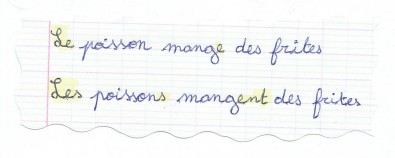 Le poisson mange des frites
Les poissons mangent des frites